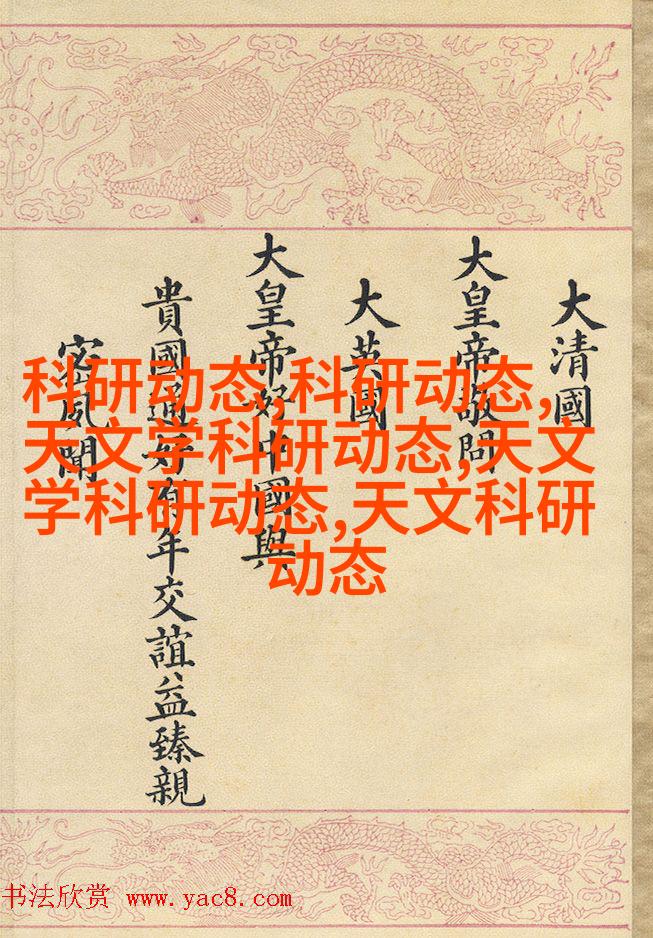 大清國
大皇帝敬問
大英國
大皇帝好中國與
貴國通好有年交誼益臻親
密夙聞
科研动态,科研动态,
天文学科研动态,天文
学科研动态,天文科研
动态
书法欣赏 www.yac8.com